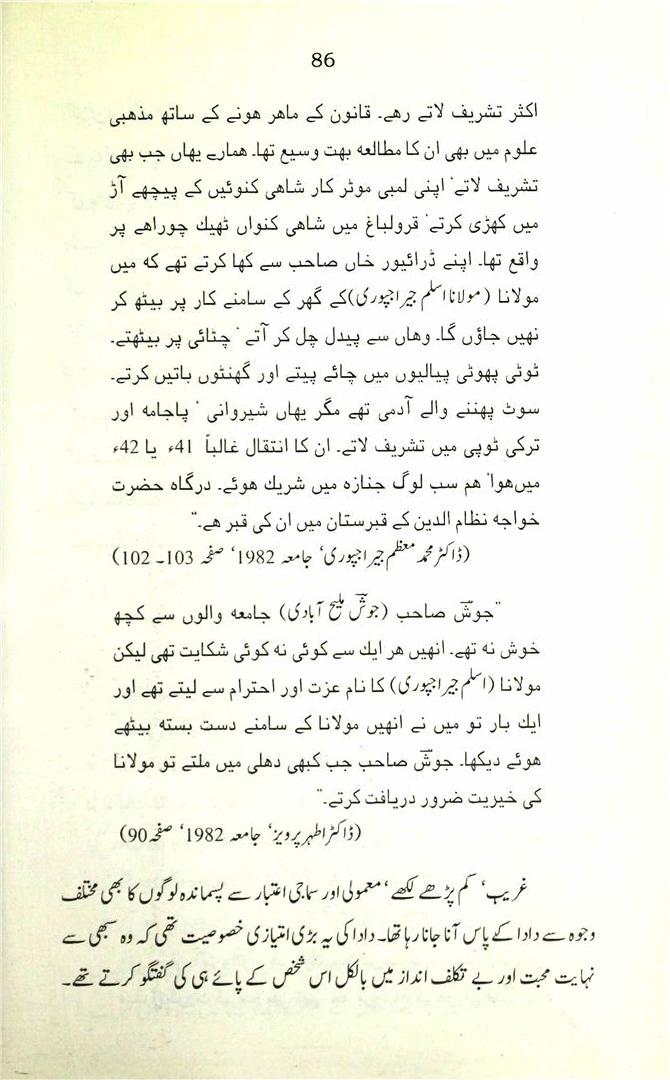 86
اکثر تشریف لاتے رھے۔ قانون کے ماھر ھونے کے ساتھ مذھبی
علوم میں بھی ان کا مطالعہ بھت وسیع تھا۔ ھمارے یھاں جب بھی
تشریف لاتے' اپنی لمبی موٹر کار شاھی کنوئیں کے پیچھے آڑ
میں کھڑی کرتے' قرولباغ میں شاھی کنواں ٹھیک چوراھے پر
واقع تھا۔ اپنے ڈرائیور خاں صاحب سے کھا کرتے تھے کہ میں
مولانا (مولانا اسلم جیراجپوری) کے گھر کے سامنے کار پر بیٹھ کر
نھیں جاؤں گا۔ وھاں سے پیدل چل کر آتے ' چٹائی پر بیٹھتے۔
ٹوٹی پھوٹی پیالیوں میں چائے پیتے اور گھنٹوں باتیں کرتے۔
سوٹ پھننے والے آدمی تھے مگر یھاں شیروانی ' پاجامہ اور
ترکی ٹوپی میں تشریف لاتے۔ ان کا انتقال غالباً 41ء یا 42ء
میں ھوا' ھم سب لوگ جنازہ میں شریک ھوئے۔ درگاہ حضرت
خواجہ نظام الدین کے قبرستان میں ان کی قبر ھے۔"
(ڈاکٹر محمد معظم جیراجپوری' جامعہ 1982' صفحہ 103۔ 102)
"جوشؔ صاحب (جوشؔ ملیح آبادی) جامعہ والوں سے کچھ
خوش نہ تھے۔ انھیں ھر ایک سے کوئی نہ کوئی شکایت تھی لیکن
مولانا (اسلم جیراجپوری) کا نام عزت اور احترام سے لیتے تھے اور
ایک بار تو میں نے انھیں مولانا کے سامنے دست بستہ بیٹھے
ھوئے دیکھا۔ جوشؔ صاحب جب کبھی دھلی میں ملتے تو مولانا
کی خیریت ضرور دریافت کرتے۔"
(ڈاکٹر اطہر پرویز' جامعہ 1982' صفحہ 90)
غریب' کم پڑھے لکھے' معمولی اور سماجی اعتبار سے پسماندہ لوگوں کا بھی مختلف
وجوہ سے دادا کے پاس آنا جانا رہا تھا۔ دادا کی یہ بڑی امتیازی خصوصیت تھی کہ وہ سبھی سے
نہایت محبت اور بے تکلف انداز میں بالکل اس شخص کے پائے ہی کی گفتگو کرتے تھے۔